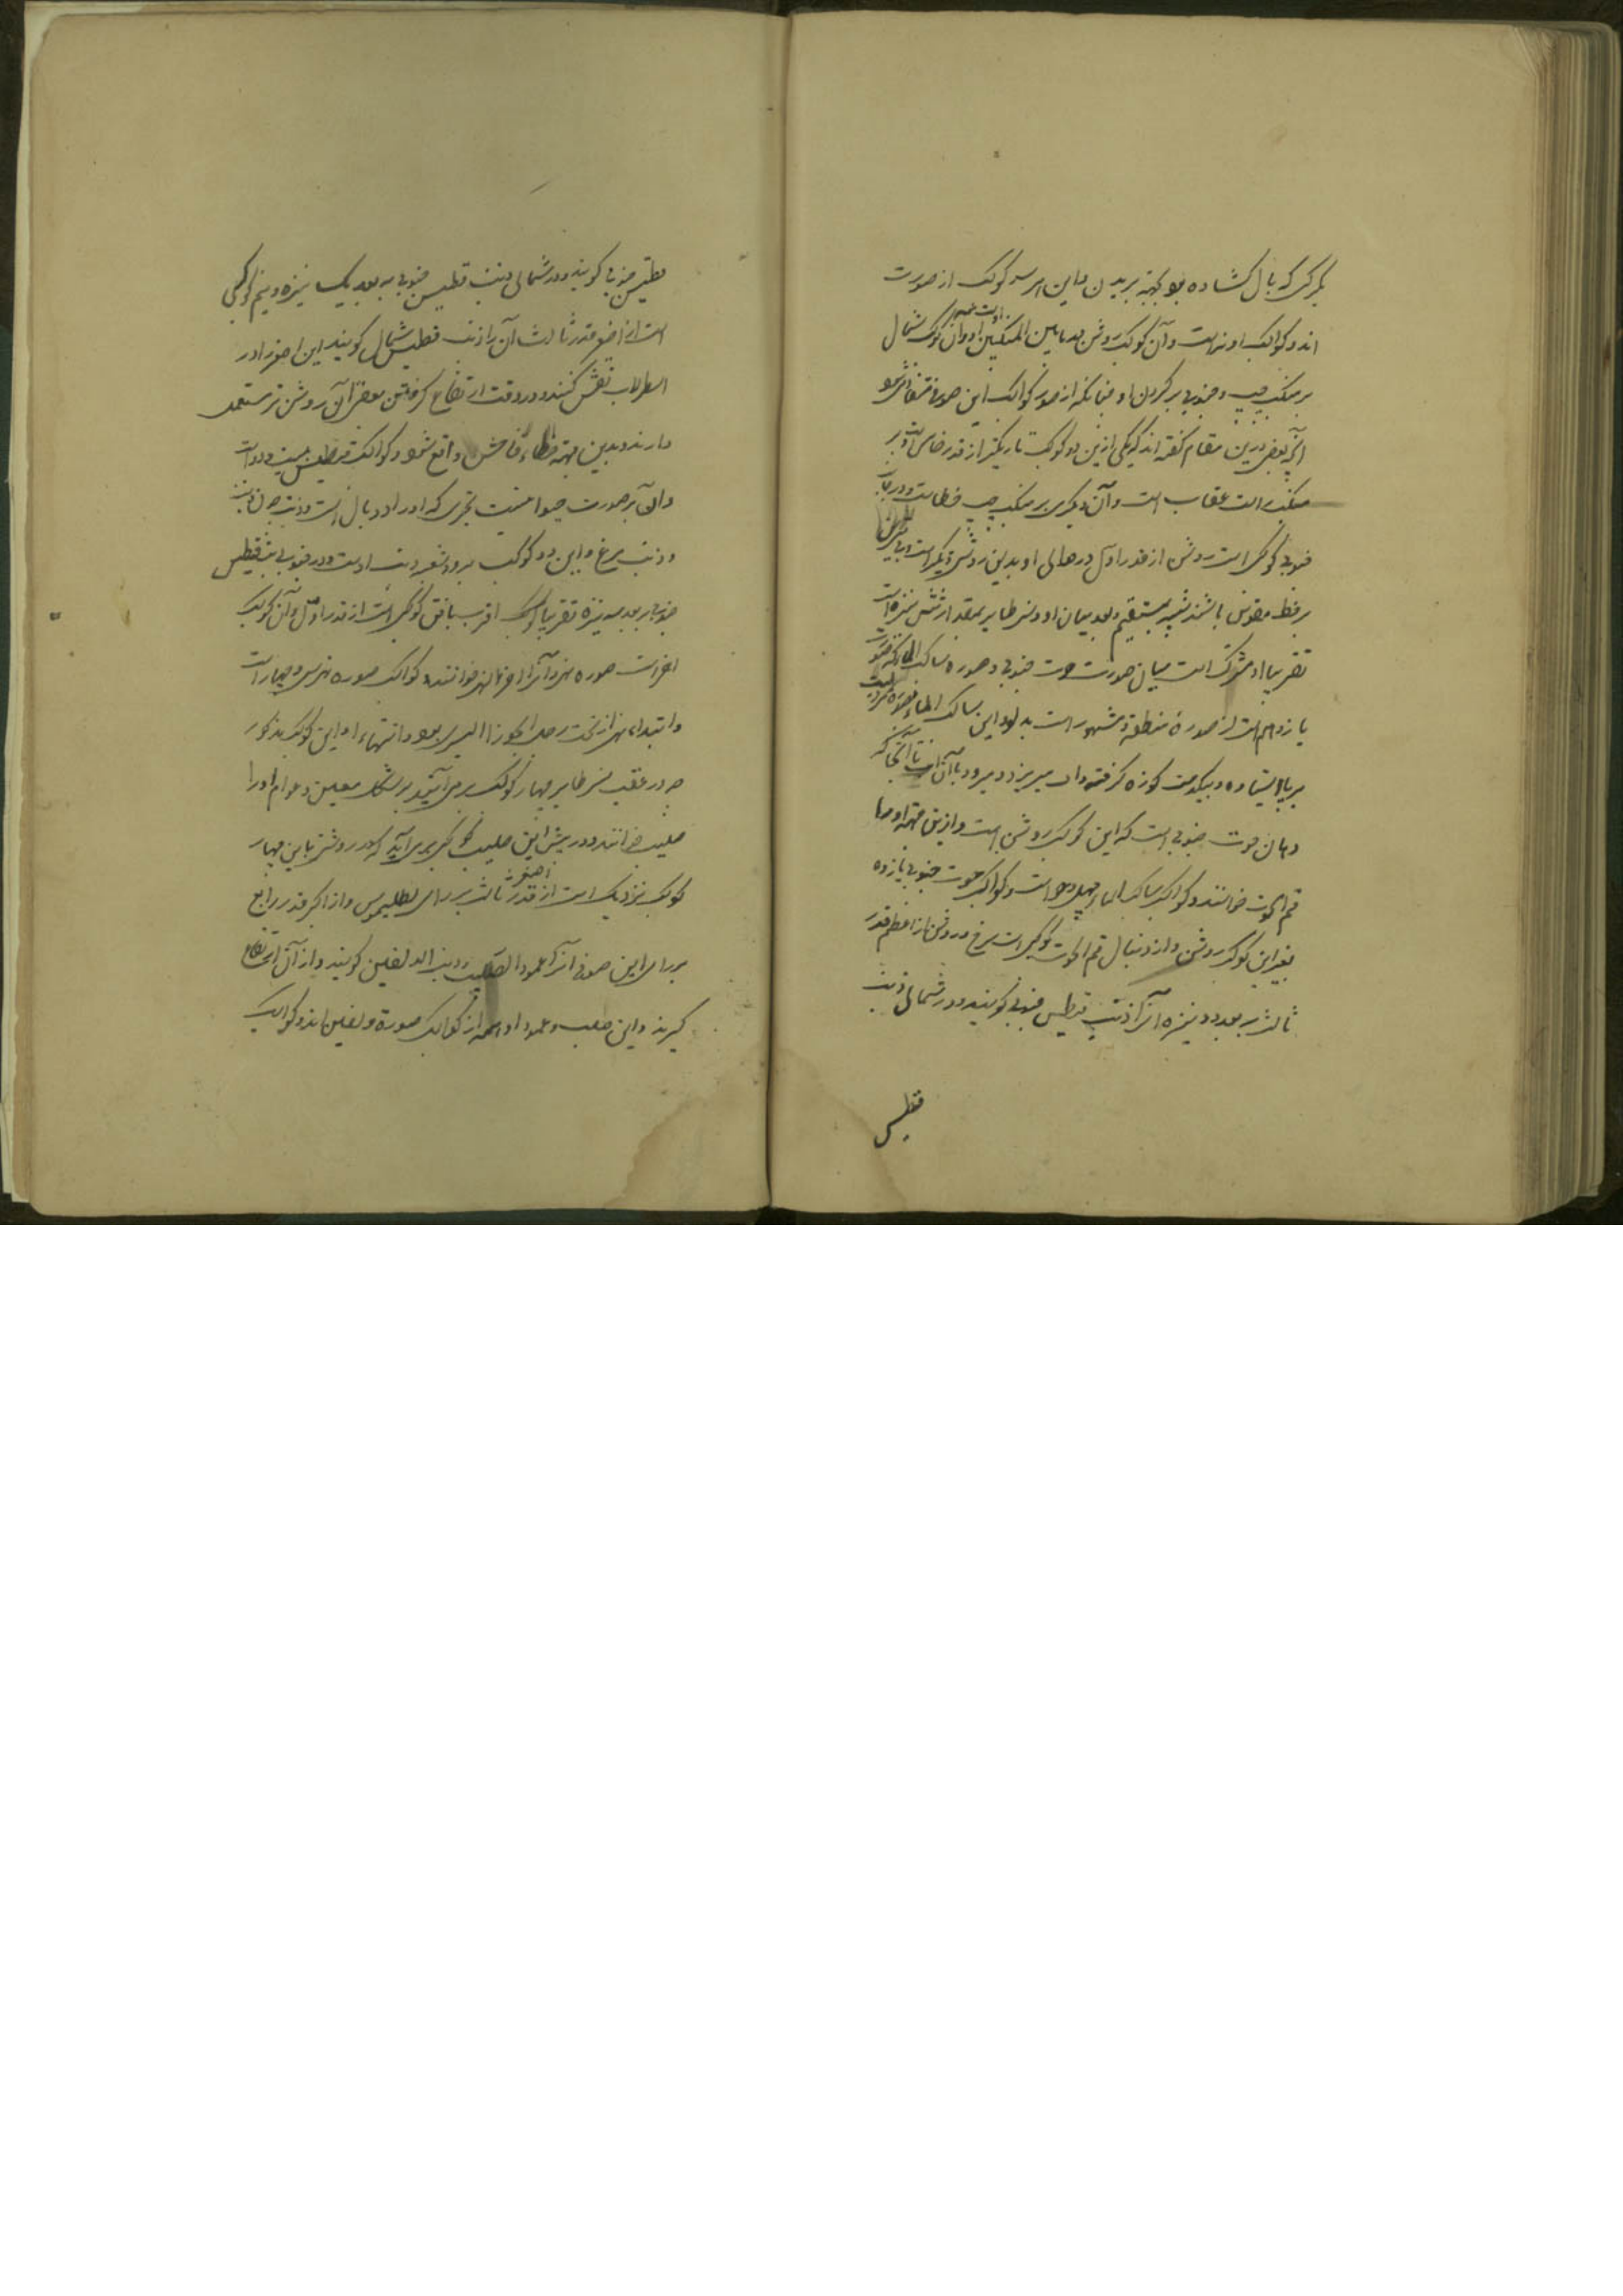 بکرکس که بال کشاده بود بجهته پریدن و این هر سه کوکب از صورت
اند و کواکب او نه است و آن کوکب روشن ما بین المنکبین او و آن کوکب شمال
بر منکب چپ و جنوبی بر کردن او چنانکه از صور کواکب این صوفی
اکر بعضی درین مقام کفته اند که یکی ازین دو کوکب تاریکتر از قدر خامس است و بر
منکب راست عقاب است و آن دیکری بر منکب چپ خطاست و در جانب
جنوبی کوکبی است روشن از قدر اول در حوالی او بدین روشنی دیکر است
بر خط مقوس باشند شبیه بمستقیم و بعد میان او و نسر طایر بمقدار شش نیزه است
تقریبا او مشترک است میان صورت حوت جنوبی و صورة ساکب الماء که صورت
یازدهم است از صورة منطقه و مشهور است بدلو و این ساکب الماء بصورة مردیست
بر پا ایستاده و بیکدست کوزه کرفته و آب میریزد و میرود با آن آب تا آنجا که
دهان حوت جنوبی است که این کوکب روشن است و ازین جهته او را
فم الحوت خوانند و کواکب ساکب الماء چهل و دو است و کواکب حوت جنوبی یازده
بغیر این کوکب روشن و از دنبال فم الحوت کوکبی است سرخ و روشن از اعظم قدر
ثالث بر بعد دو نیزه آنرا ذنب قیطس جنوبی کویند و در شمالی ذنب
قیطس
قیطس جنوبی کویند و در شمالی ذنب قیطس جنوبی به بعد یک نیزه و نیم کوکبی
است از اصغر قدر ثالث آن را ذنب قیطس شمالی کویند این اصغر را در
اسطرلاب نقش کنند و در وقت ارتفاع کرفتن بعضی آن روشن تر مستعمل
دارند و بدین جهته خطاء فاحش واقع شود و کواکب قیطس بیست و دو است
و آن بر صورت حیوانیست بحری که او را دو بال است و ذنب چون ذنب
و ذنب مرغ و این دو کوکب بر دو شعبه ذنب اوست و در جنوبی ذنب قیطس
جنوبی بر بعد سه نیزه تقریبا اقرب بافق کوکبی است از قدر اول و آن کوکب
آخر است صورة نهر و آنرا آخر النهر خوانند و کواکب صورة نهر سی و چهار است
و ابتداء نهر از تحت رجل الجوزا الیسری بود و انتهاء او این کوکب مذکور
و در عقب نسر طایر چهار کوکب بر می آیند بر شکل معین و عوام او را
صلیب خوانند و در پیش این صلیب کوکبی بر می آید که در روشنی باین چهار
کوکب نزدیک است از اصغر قدر ثالث بر رای بطلیموس و از اکبر قدر رابع
بر رای ابن صوفی آنرا عمود الصلیب و ذنب الدلفین کویند و از آن ارتفاع
کیرند و این صلیب و عمود او همه از کواکب صورة دلفین اند و کواکب